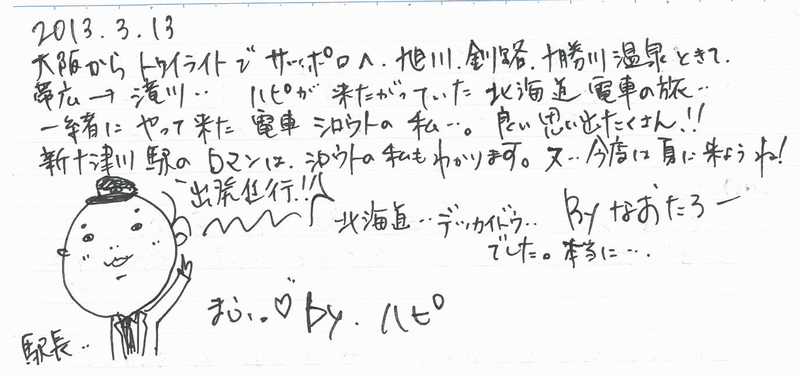 2013.3.13
大阪から トワイライトで サッポロへ. 旭川. 釧路. 十勝川温泉ときて.
帯広→滝川‥ ハピが 来たがっていた 北海道 電車の旅‥
一緒に やって来た 電車 シロウトの 私…。 良い思い出たくさん!!
新十津川駅の ロマンは、シロウトの私もわかります。又…今度は 夏に来ようね!
出発進行!!
北海道‥デッカイドウ‥ By なおたろー
でした。本当に….
by. ハピ
駅長‥